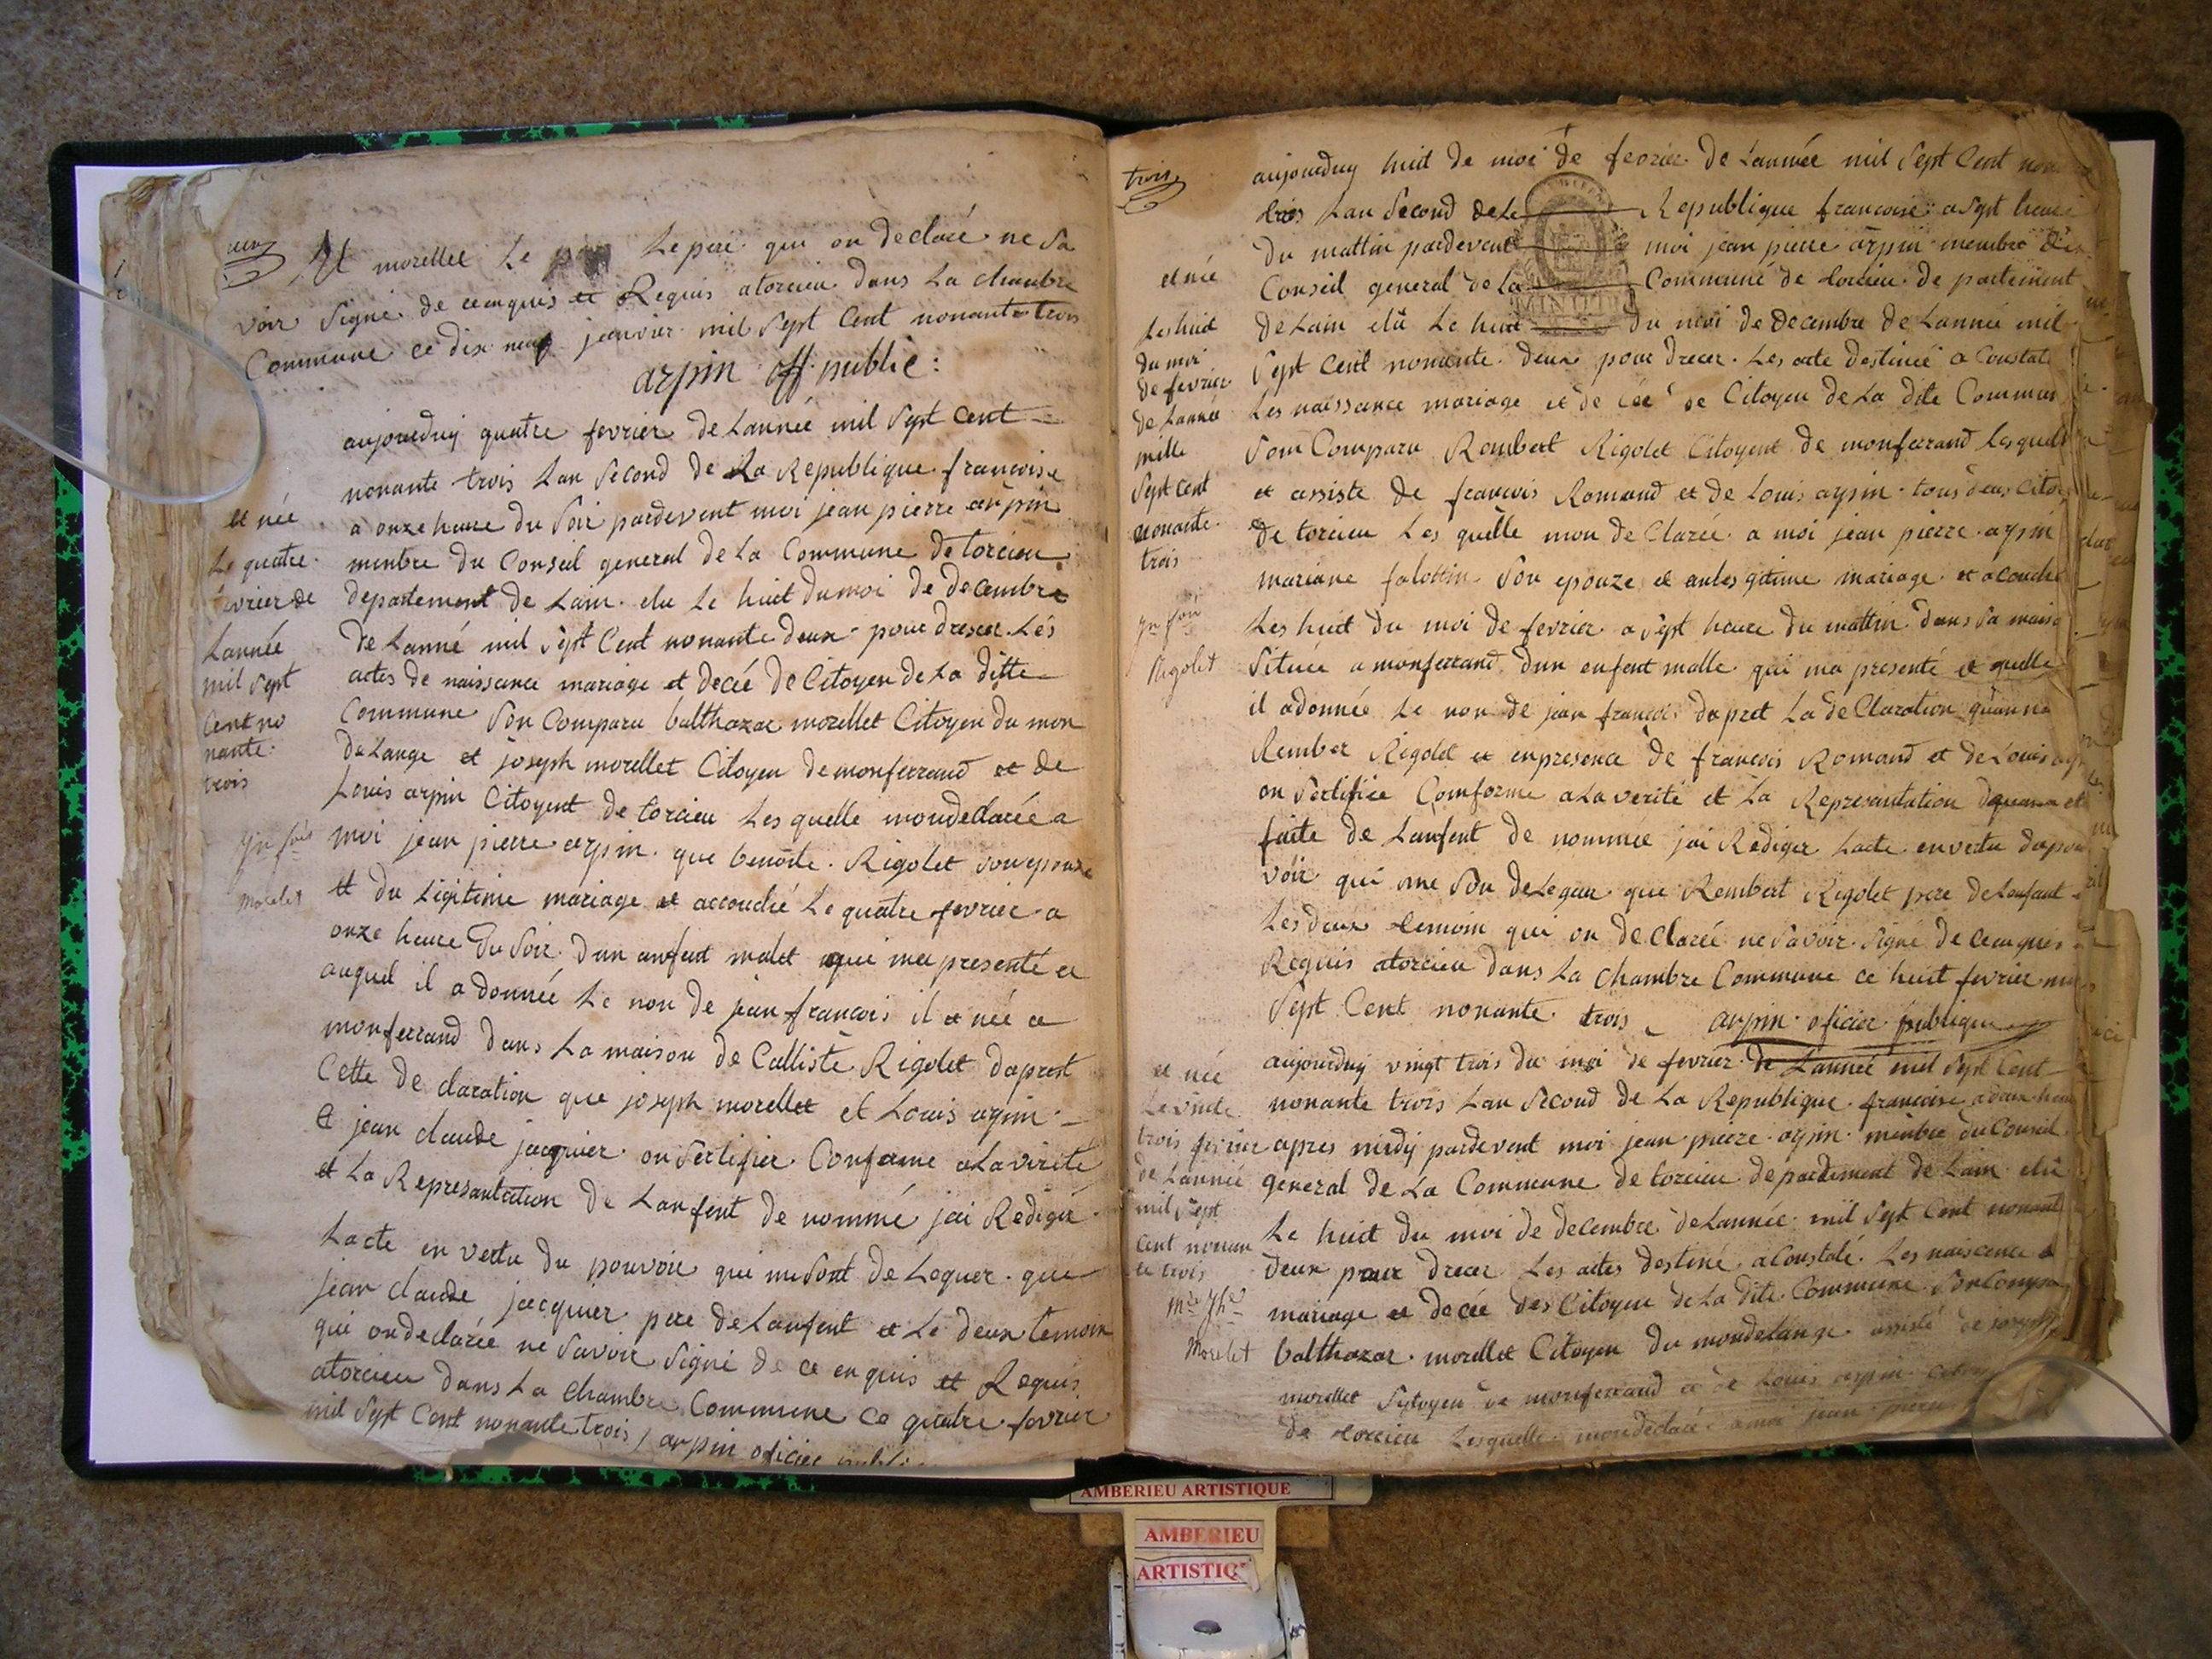 Et morellee Le Le pere qui on declaré ne Sa
voir Signé de ceanquis et Requis atorcieu dans La chambre
Commune ce dix neuf janvier mil Sept Cent nonante trois
arpin off. public:
aujourduy quatre fevrier de Lannée mil Sept cent
nonante trois Lan Second de La Republique francoise
a onze heure du Soir pardevent moi jean pierre arpin
menbre du Conseil general de La Commune de torcieu
departement de Lain elu Le huit du moi de decembre
de Lanné mil Sept Cent nonante deux pour dreser Les
actes de naissance mariage et decée de Citoyen de La ditte
Commune Son Comparu balthazar morellet Citoyen du mon
de Lange et joseph morellet Citoyen de monferrand et de
Louis arpin Citoyent de torcieu Les quelle mondeclarée a
moi jean pierre arpin que benoite Rigolet son epouze
et du Ligitime mariage et accouché Le quatre fevrier a
onze heure du Soir dun anfent malet qui ma presenté et
auquel il a donnée Le non de jean francois il et née a
monferrand dans La maison de Calliste Rigolet daprest
Cette de claration que joseph morellet et Louis arpin
et jean claude jacquier on Sertifier Conforme a La verite
et La Represantation de Lanfent de nommé jai Rediger
Lacte en vertu du pouvoir qui me Sont de Leguer que
jean claude jacquier pere de Lanfent et Le deux temoin
qui on declarée ne Savoir Signé de ce enquis et Requis
atorcieu dans La chambre Commune ce quatre fevrier
mil Sept Cent nonante trois arpin oficier publi
et née
Le quatre
fevrier de
Lannée
mil Sept
Cent no
nante
trois
Jn fois
Morelet
trois
aujourduy huit de moi de fevrier de Lannée mil Sept Cent
trois Lan Second de La Republique francoise a Sept heure
du mattin pardevent moi jean pierre arpin membre du
Conseil general de La Commune de torcieu de partement
de Lain elû Le huit du moi de decembre de Lannée mil
Sept Cent nonante deux pour drecer Les acte destinée a Constate
Les naissance mariage et de cée de Citoyen de La dite Commun
Son Comparu Rembert Rigolet Citoyent de monferrand Lesquels
et assiste de francois Romand et de Louis arpin tous deux Citoy
de torcieu Les quelle mon de Clarée a moi jean pierre arpin
mariane falottin Son epouze et anlesgitime mariage et acouche
Les huit du moi de fevrier a Sept heure du mattin dans Sa maiso
Située a monferrand dun enfent malle qui ma presenté et quelle
il adonnée Le non de jean francois dapret La deClaration quan na
Rember Rigolet et enpresence de francois Romand et de Louis
on Sertifiée Comforme a La verité et La Represantation
faite de Lanfent de nommee jai Rediger Lacte en vertu dupou
voir qui me Son deLeguer que Rembert Rigolet pere de Lanfant
Les deux temoin qui on de Clarée ne Savoir Signé de ceanquis
Requis atorcieu dans La chambre Commune ce huit fevrier
Sept Cent nonante trois arpin oficier publique
aujourduy vingt trois du moi de fevrier de Lannée mil Sept Cent
nonante trois Lan Second de La Republique francoise a deux heu
apres midy pardevent moi jean pierre arpin menbre du Conseil
general de La Commune de torcieu departement de Lain elû
Le huit du moi de decembre de Lannée mil Sept Cent nonant
deux pour drecer Les actes destiné aConstaté Les naiscence et
mariage et decée des Citoyen de La dite Commune Son Compa
balthazar morellet Citoyen du mondelange assisté de joseph
morellet Sitoyen de monferrand et de Louis arpin
de torcieu Lesquelle mondeclaré a moi jean pierre
et née
Les huit
du moi
de fevrier
de Lannée
mille
Sept cent
nonante
trois
Jn fois
Rigolet
et née
Le vinte
trois fevrier
de Lannée
mil Sept
Cent nonan
te trois
Mie Jhe
Morelet
AMBERIEU ARTISTIQUE
AMBERIEU
ARTISTIQ